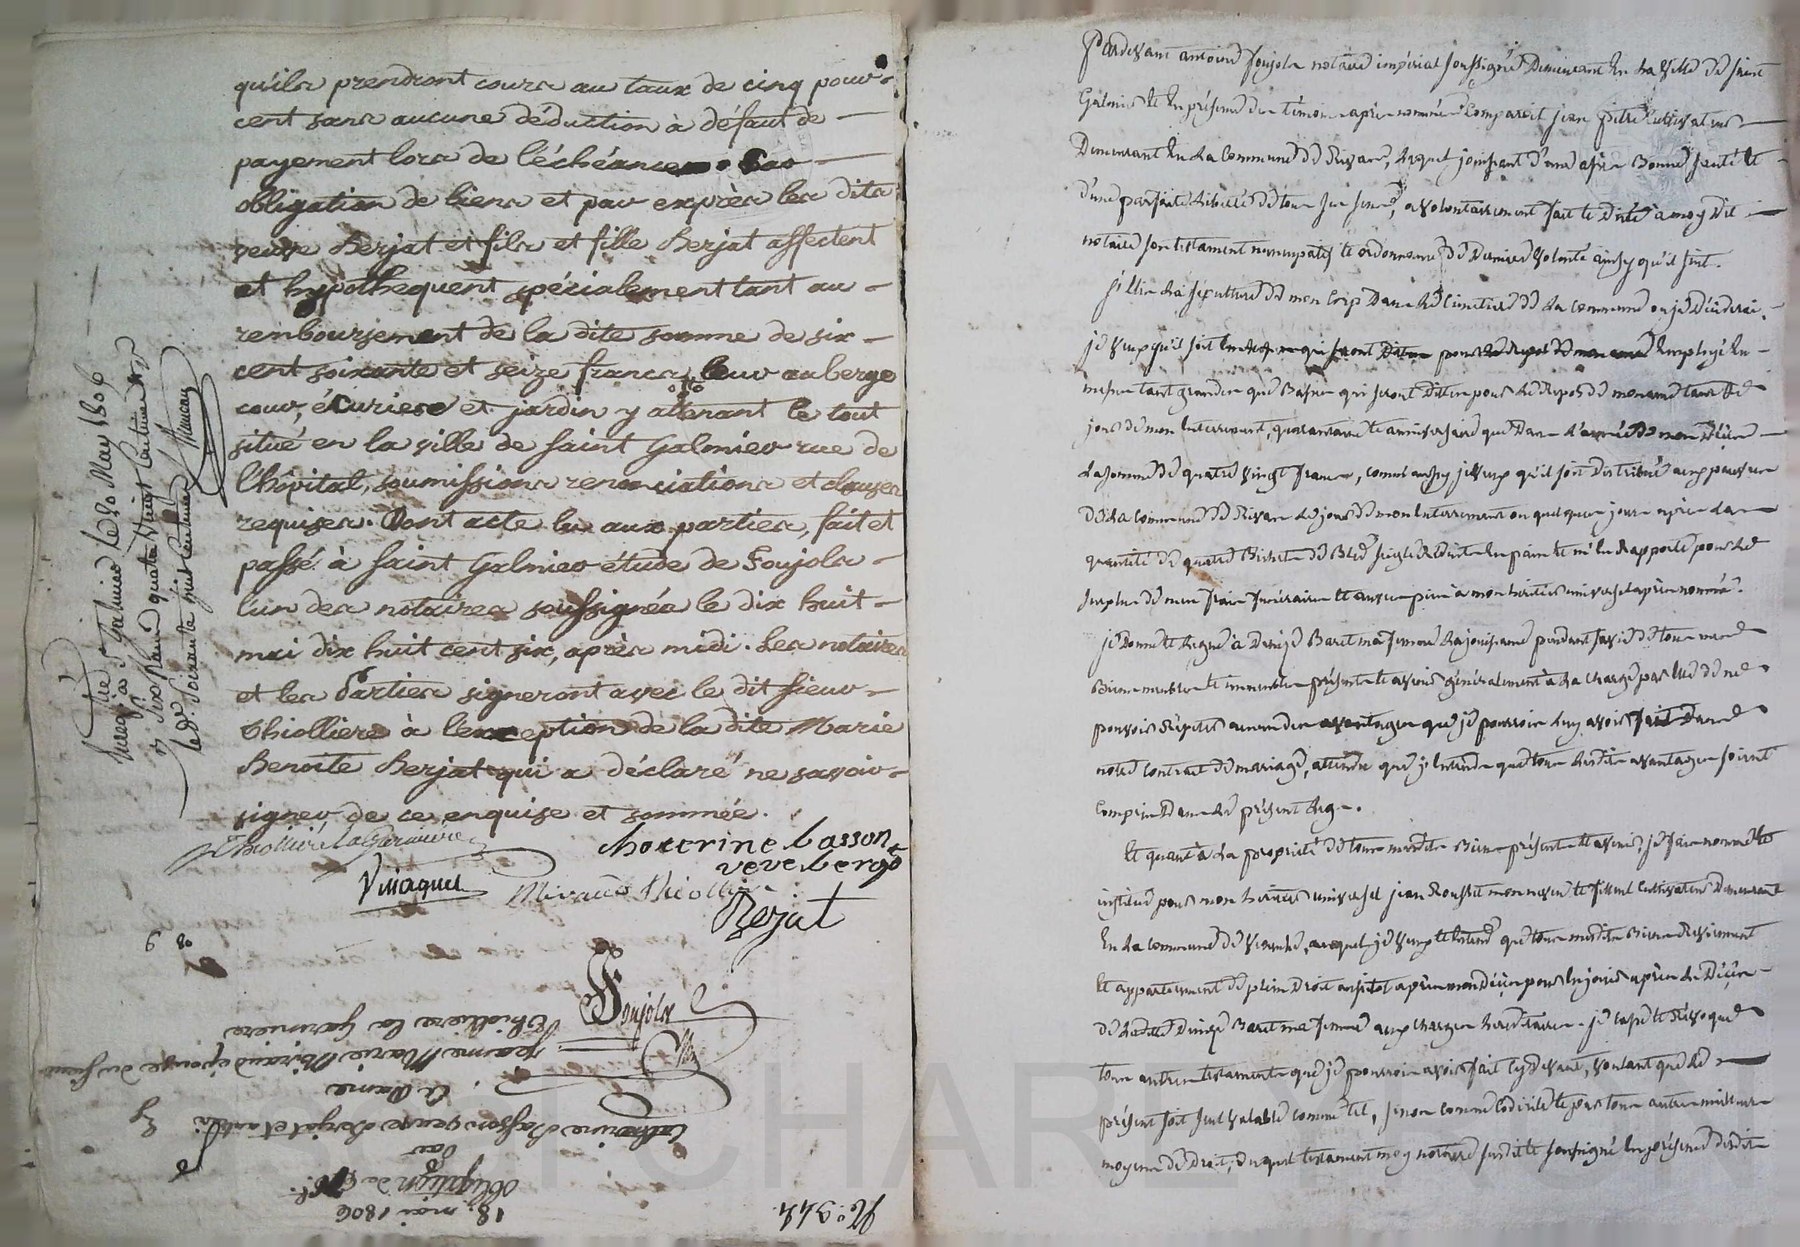 qu'ils prendront cours au taux de cinq pour
cent sans aucune déduction à défaut de
payement lors de l'échéance. Sous
obligation de biens et par exprès les dits
veuve Berjat et fils et fille Berjat affectent
et hypothequent spécialement tant au
remboursement de la dite somme de six
cent soixante et seize francs, leur auberge
cour, écuries et jardin y attenant le tout
situé en la ville de saint Galmier rue de
l'hôpital, soumissions renonciations et clauses
requises. Dont acte lu aux parties, fait et
passé à saint Galmier étude de Foujols
l'un des notaires soussignés le dix huit
mai dix huit cent six, après midi. Les notaires
et les Parties signeront avec le dit sieur
Thiolliere à l'exception de la dite Marie
Benoite Berjat qui a déclaré ne savoir
signer de ce enquise et sommée.
Thiollière La Garinière
chaterine basson
veve berga
Miraud Thiollier
Berjat
Foujols
6 80
N.o 344
18. mai 1806
obligation de
par
catherine Basson veuve Berjat et autres
à Dame
jeanne Marie Miraud épouse du sieur
Thiolliere la Garinière
à St Galmier Le 20 May 1806
Pardevant antoine foujols notaire impérial soussigné Demeurant En La ville de saint
Galmier Et En présence des témoins après nommés Comparoit jean pitre Cultivateur
Demeurant En La Commune de Rivas, Lequel jouissant d'une assés Bonne santé Et
d'une parfaite Liberté de tous ses sens, a volontairement fait et dicté a moy dit
notaire son testament nuncupatif et ordonnance de Derniere volonté ainsy qu'il suit.
j'Elis La sepulture de mon Corps Dans Le Cimetiere de La Commune ou je Décéderai,
je veux qu'il soit Employé En
messes tant grandes que Basses qui seront Dittes pour Le Repos de mon ame tant Le
jour de mon Enterrement, quarantaine et anniversaire que Dans L'année de mon Décès
La somme de quatre vingt francs, comme aussy je veux qu'il soit distribué aux pauvres
de La Commune de Rivas Le jour de mon Enterrement ou quelques jours après La
quantité de quatre Bichets de Bled seigle Réduite En pain Et m'En Rapporte pour Le
surplus de mes frais funéraires Et œuvres pies a mon héritier universel après nommé.
je Donne Et Legue à Denise Baret ma femme La jouissance pendant sa vie de tous mes
Biens meubles Et immeubles présents Et avenir généralement à La charge par Elle de ne
pouvoir Répeter aucun des avantages que je pourrois Luy avoir fait Dans
notre Contrat de mariage, attendu que j'Entends que tous Lesdits avantages soient
Compris Dans Le présent Legs.
Et quant à La propriété de tous mesdits Biens présents Et avenir, je fais nomme Et
institue pour mon héritier universel jean Rousset mon neveu Et filleul Cultivateur Demeurant
En La Commune de Veauche, auquel je veux Et Entends que tous mesdits Biens Reviennent
Et appartiennent de plein Droit aussitot après mon Décès pour En jouir après Le Décès
de Ladite Denise Baret ma femme aux charges héréditaires. je Casse Et Révoque
tous autres testaments que je pourrois avoir fait Cy Devant, voulant que Le
présent soit seul valable comme tel, sinon comme Codicile Et par tous autres meilleurs
moyens de Droit, Duquel testament moy notaire susdit Et soussigné En présence desdits